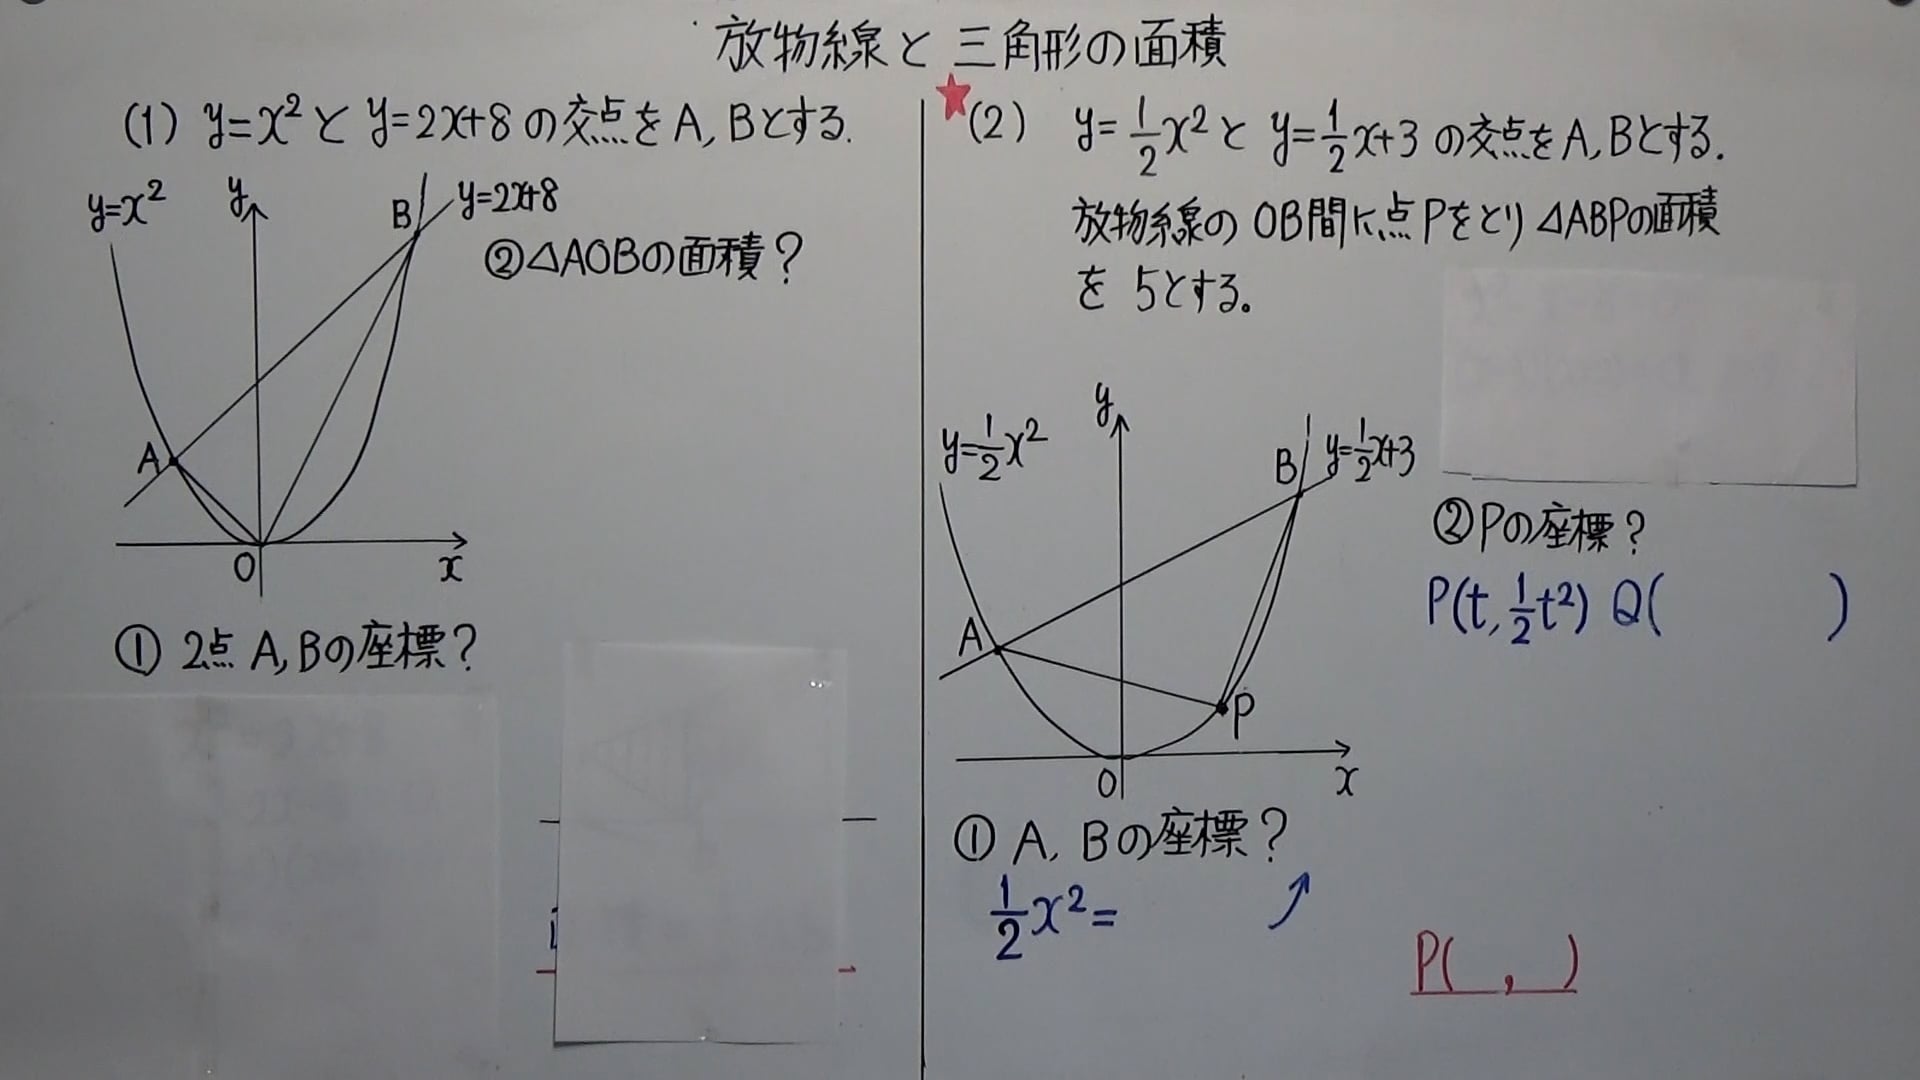 放物線と三角形の面積
(1) y=x² と y=2x+8 の交点をA,Bとする.
y=x²
y
B
y=2x+8
②△AOBの面積?
A
O
x
① 2点 A,Bの座標?
★(2) y=1/2x² と y=1/2x+3 の交点をA,Bとする.
放物線の OB間に点Pをとり △ABPの面積
を 5とする。
y
y=1/2x²
B
y=1/2x+3
A
P
O
x
① A, Bの座標?
1/2x²=
②Pの座標?
P(t, 1/2t²) Q( )
P( , )